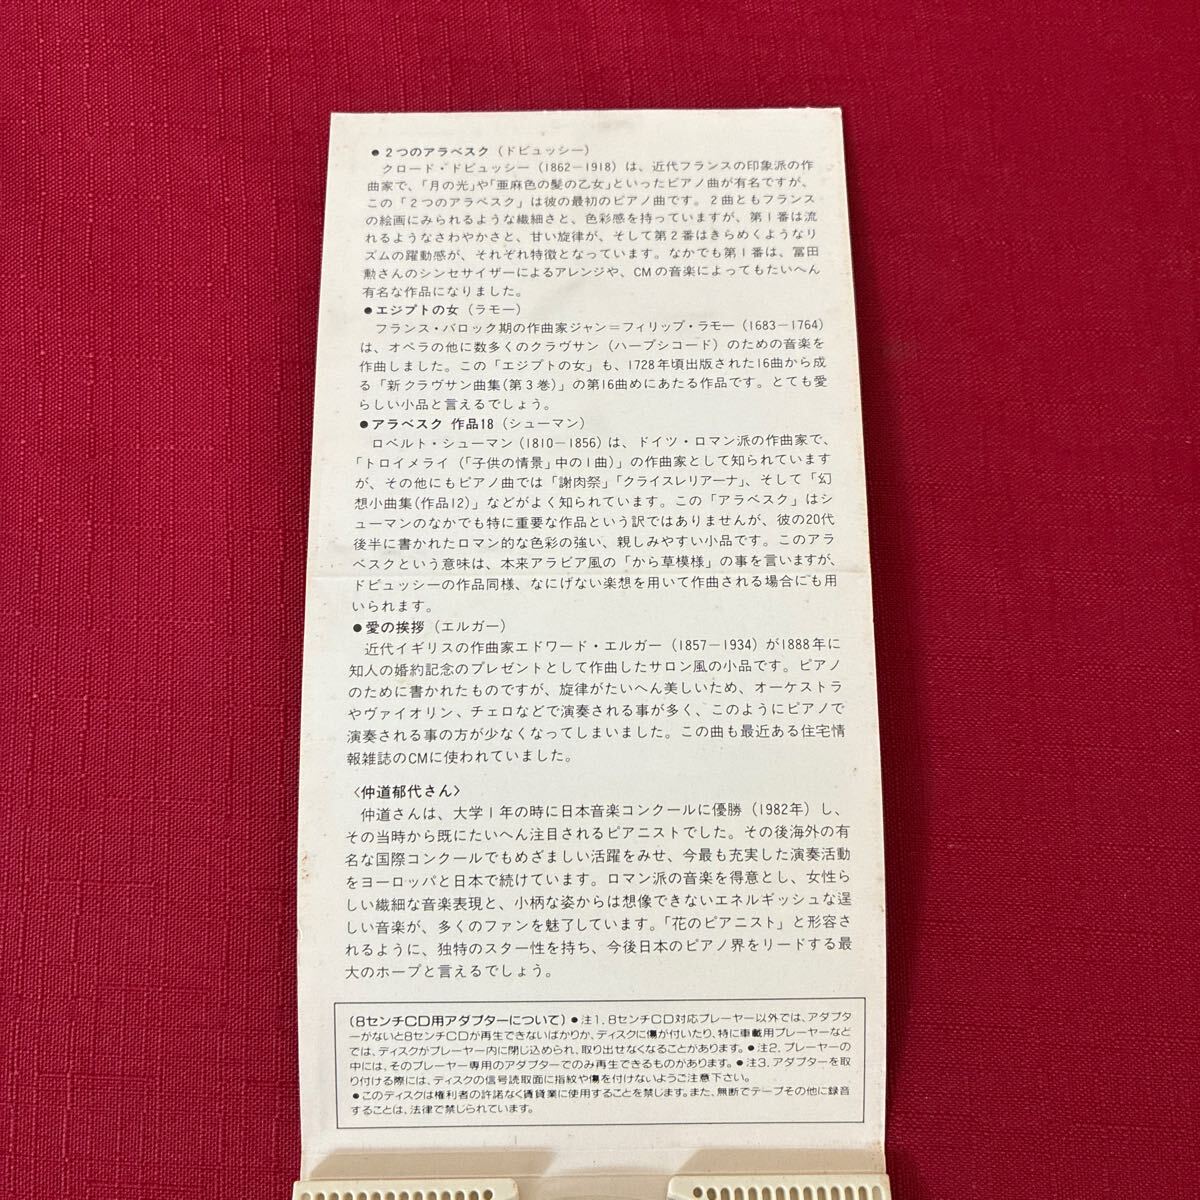 ●2つのアラベスク(ドビュッシー)
クロード・ドビュッシー(1862－1918)は、近代フランスの印象派の作
曲家で、「月の光」や「亜麻色の髪の乙女」といったピアノ曲が有名ですが、
この「2つのアラベスク」は彼の最初のピアノ曲です。2曲ともフランス
の絵画にみられるような繊細さと、色彩感を持っていますが、第1番は流
れるようなさわやかさと、甘い旋律が、そして第2番はきらめくようなリ
ズムの躍動感が、それぞれ特徴となっています。なかでも第1番は、冨田
勲さんのシンセサイザーによるアレンジや、CMの音楽によってもたいへん
有名な作品になりました。
●エジプトの女(ラモー)
フランス・バロック期の作曲家ジャン＝フィリップ・ラモー(1683－1764)
は、オペラの他に数多くのクラヴサン(ハープシコード)のための音楽を
作曲しました。この「エジプトの女」も、1728年頃出版された16曲から成
る「新クラヴサン曲集(第3巻)」の第16曲めにあたる作品です。とても愛
らしい小品と言えるでしょう。
●アラベスク 作品18(シューマン)
ロベルト・シューマン(1810－1856)は、ドイツ・ロマン派の作曲家で、
「トロイメライ(「子供の情景」中の1曲)」の作曲家として知られています
が、その他にもピアノ曲では「謝肉祭」「クライスレリアーナ」、そして「幻
想小曲集(作品12)」などがよく知られています。この「アラベスク」はシ
ューマンのなかでも特に重要な作品という訳ではありませんが、彼の20代
後半に書かれたロマン的な色彩の強い、親しみやすい小品です。このアラ
ベスクという意味は、本来アラビア風の「から草模様」の事を言いますが、
ドビュッシーの作品同様、なにげない楽想を用いて作曲される場合にも用
いられます。
●愛の挨拶(エルガー)
近代イギリスの作曲家エドワード・エルガー(1857－1934)が1888年に
知人の婚約記念のプレゼントとして作曲したサロン風の小品です。ピアノ
のために書かれたものですが、旋律がたいへん美しいため、オーケストラ
やヴァイオリン、チェロなどで演奏される事が多く、このようにピアノで
演奏される事の方が少なくなってしまいました。この曲も最近ある住宅情
報雑誌のCMに使われていました。
〈仲道郁代さん〉
仲道さんは、大学1年の時に日本音楽コンクールに優勝(1982年)し、
その当時から既にたいへん注目されるピアニストでした。その後海外の有
名な国際コンクールでもめざましい活躍をみせ、今最も充実した演奏活動
をヨーロッパと日本で続けています。ロマン派の音楽を得意とし、女性ら
しい繊細な音楽表現と、小柄な姿からは想像できないエネルギッシュな逞
しい音楽が、多くのファンを魅了しています。「花のピアニスト」と形容さ
れるように、独特のスター性を持ち、今後日本のピアノ界をリードする最
大のホープと言えるでしょう。
(8センチCD用アダプターについて)●注1.8センチCD対応プレーヤー以外では、アダプタ
ーがないと8センチCDが再生できないばかりか、ディスクに傷が付いたり、特に車載用プレーヤーなど
では、ディスクがプレーヤー内に閉じ込められ、取り出せなくなることがあります。●注2.プレーヤーの
中には、そのプレーヤー専用のアダプターでのみ再生できるものがあります。●注3.アダプターを取
り付ける際には、ディスクの信号読取面に指紋や傷を付けないようご注意下さい。
●このディスクは権利者の許諾なく賃貸業に使用することを禁じます。また、無断でテープその他に録音
することは、法律で禁じられています。